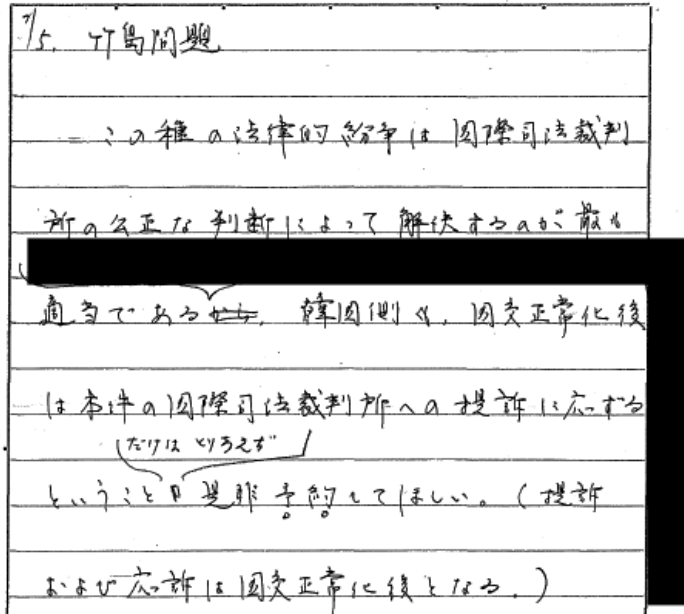 5. 竹島問題
この種の法律的紛争は国際司法裁判
所の公正な判断によって解決するのが最も
適当である から、韓国側も、国交正常化後
は本件の国際司法裁判所への提訴に応ずる
だけは とりあえず
ということ 是非予約してほしい。(提訴
および応訴は国交正常化後となる。)